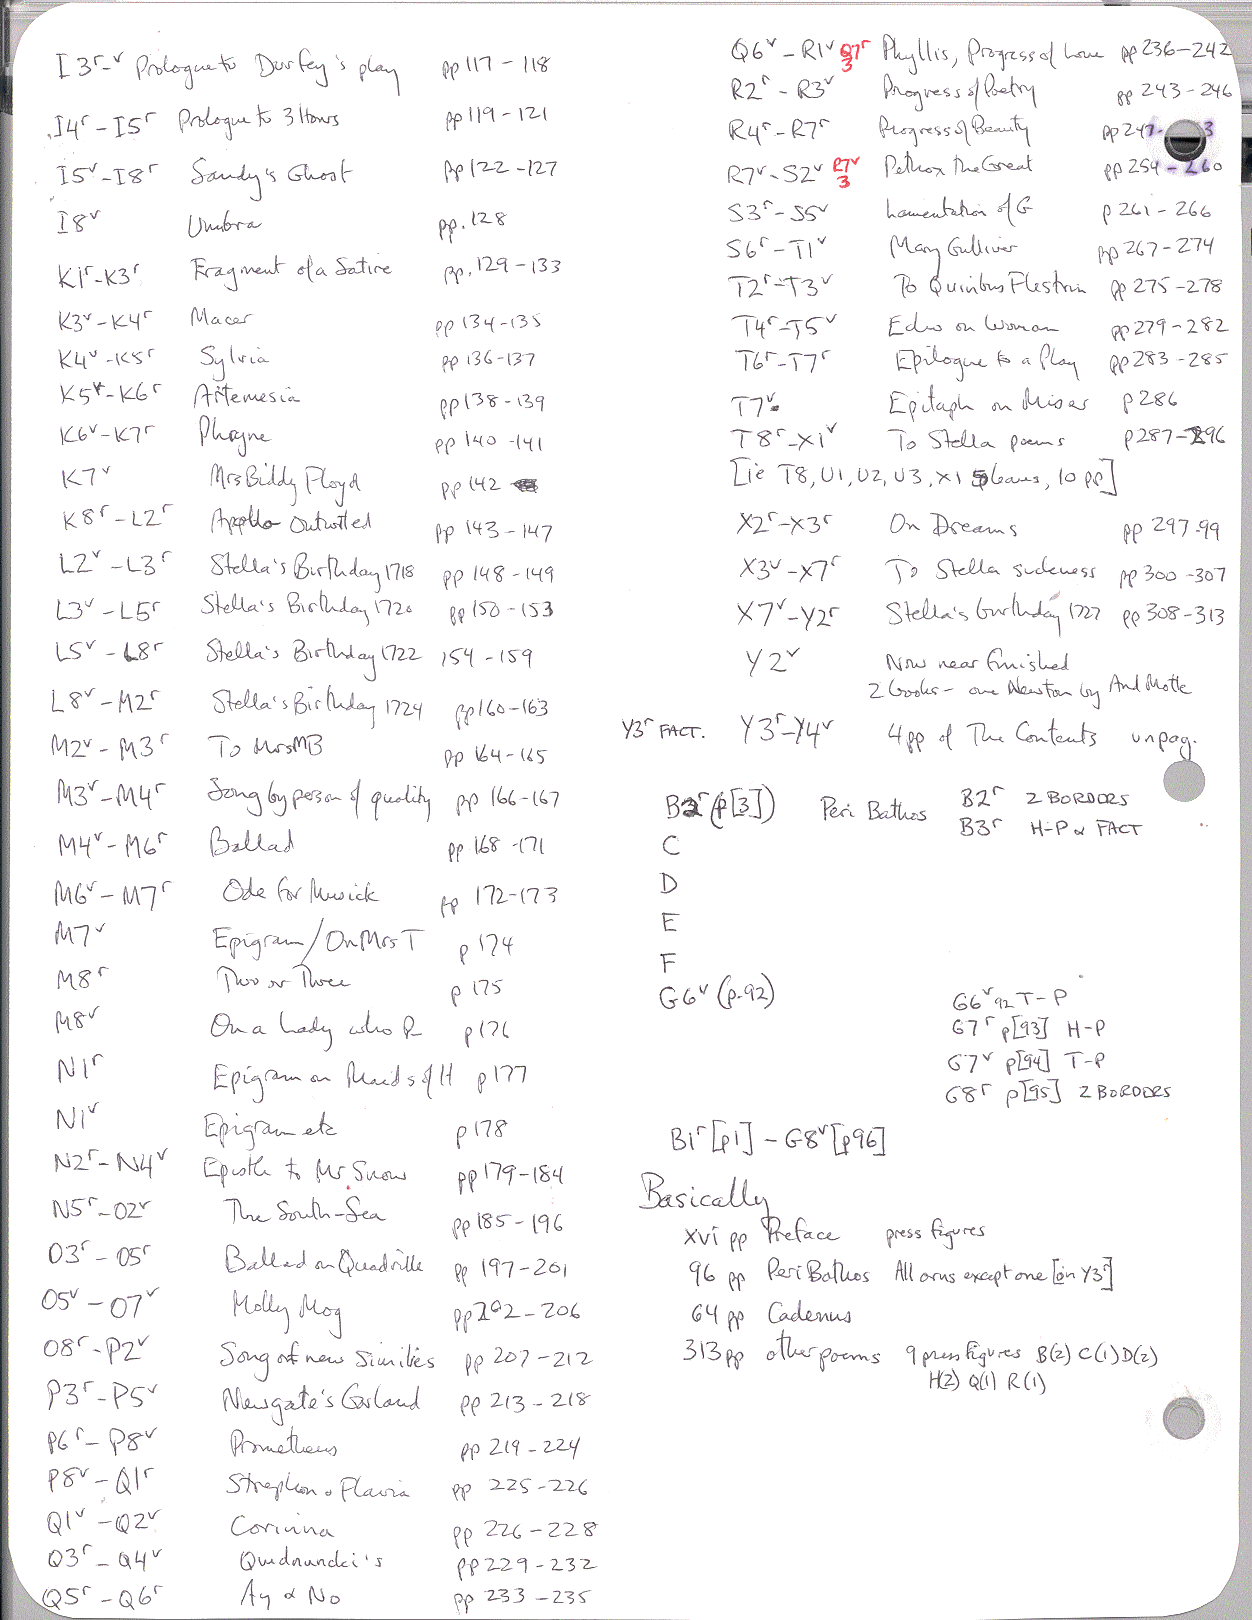 I3ʳ-ᵛ Prologue to Durfey's play pp 117 - 118
I4ʳ - I5ʳ Prologue to 3 Hours pp 119 - 121
I5ᵛ - I8ʳ Sandy's Ghost pp 122 - 127
I8ᵛ Umbra pp. 128
K1ʳ - K3ʳ Fragment of a Satire pp. 129 - 133
K3ᵛ - K4ʳ Macer pp 134 - 135
K4ᵛ - K5ʳ Sylvia pp 136 - 137
K5ᵛ - K6ʳ Artemesia pp 138 - 139
K6ᵛ - K7ʳ Phryne pp 140 - 141
K7ᵛ Mrs Biddy Floyd pp 142
K8ʳ - L2ʳ Apollo Outwitted pp 143 - 147
L2ᵛ - L3ʳ Stella's Birthday 1718 pp 148 - 149
L3ᵛ - L5ʳ Stella's Birthday 1720 pp 150 - 153
L5ᵛ - L8ʳ Stella's Birthday 1722 154 - 159
L8ᵛ - M2ʳ Stella's Birthday 1724 pp 160 - 163
M2ᵛ - M3ʳ To Mrs MB pp 164 - 165
M3ᵛ - M4ʳ Song by person of quality pp 166 - 167
M4ᵛ - M6ʳ Ballad pp 168 - 171
M6ᵛ - M7ʳ Ode for Musick pp 172 - 173
M7ᵛ Epigram / On Mrs T p 174
M8ʳ Two or Three p 175
M8ᵛ On a Lady who P p 176
N1ʳ Epigram on Maids of H p 177
N1ᵛ Epigram etc p 178
N2ʳ - N4ᵛ Epistle to Mr Snow pp 179 - 184
N5ʳ - O2ᵛ The South-Sea pp 185 - 196
O3ʳ - O5ʳ Ballad on Quadrille pp 197 - 201
O5ᵛ - O7ᵛ Molly Mog pp 202 - 206
O8ʳ - P2ᵛ Song of new Similies pp 207 - 212
P3ʳ - P5ᵛ Newgate's Garland pp 213 - 218
P6ʳ - P8ᵛ Prometheus pp 219 - 224
P8ᵛ - Q1ʳ Strephon & Flavia pp 225 - 226
Q1ᵛ - Q2ᵛ Corinna pp 226 - 228
Q3ʳ - Q4ᵛ Quidnuncki's pp 229 - 232
Q5ʳ - Q6ʳ Ay & No pp 233 - 235
Q6ᵛ - R1ᵛ Q7ʳ 3 Phyllis, Progress of Love pp 236 - 242
R2ʳ - R3ᵛ Progress of Poetry pp 243 - 246
R4ʳ - R7ʳ Progress of Beauty pp 247 - 3
R7ᵛ - S2ᵛ R7ᵛ 3 Pethox the Great pp 254 - 260
S3ʳ - S5ᵛ Lamentation of G p 261 - 266
S6ʳ - T1ᵛ Mary Gulliver pp 267 - 274
T2ʳ - T3ᵛ To Quinbus Flestrin pp 275 - 278
T4ʳ - T5ᵛ Echo on Woman pp 279 - 282
T6ʳ - T7ʳ Epilogue to a Play pp 283 - 285
T7ᵛ Epitaph on Miser p 286
T8ʳ - X1ᵛ To Stella poems p 287 - 296
[ie T8, U1, U2, U3, X1 5 leaves, 10 pp]
X2ʳ - X3ʳ On Dreams pp 297-99
X3ᵛ - X7ʳ To Stella sickness pp 300 - 307
X7ᵛ - Y2ʳ Stella's birthday 1727 pp 308 - 313
Y2ᵛ Now near finished
2 books - one Newton by And Motte
Y3ʳ FACT. Y3ʳ - Y4ᵛ 4 pp of The Contents unpag.
B3ʳ (p [3]) Peri Bathos B2ʳ 2 BORDERS
B3ʳ H-P & FACT
C
D
E
F
G6ᵛ (p. 92) G6ᵛ 92 T-P
G7ʳ p [93] H-P
G7ᵛ p [94] T-P
G8ʳ p [95] 2 BORDERS
B1ʳ [p1] - G8ᵛ [p96]
Basically
xvi pp Preface press figures
96 pp Peri Bathos All orns except one [on Y3ʳ]
64 pp Cadenus
313 pp other poems 9 press figures B(2) C(1) D(2)
H(2) Q(1) R(1)